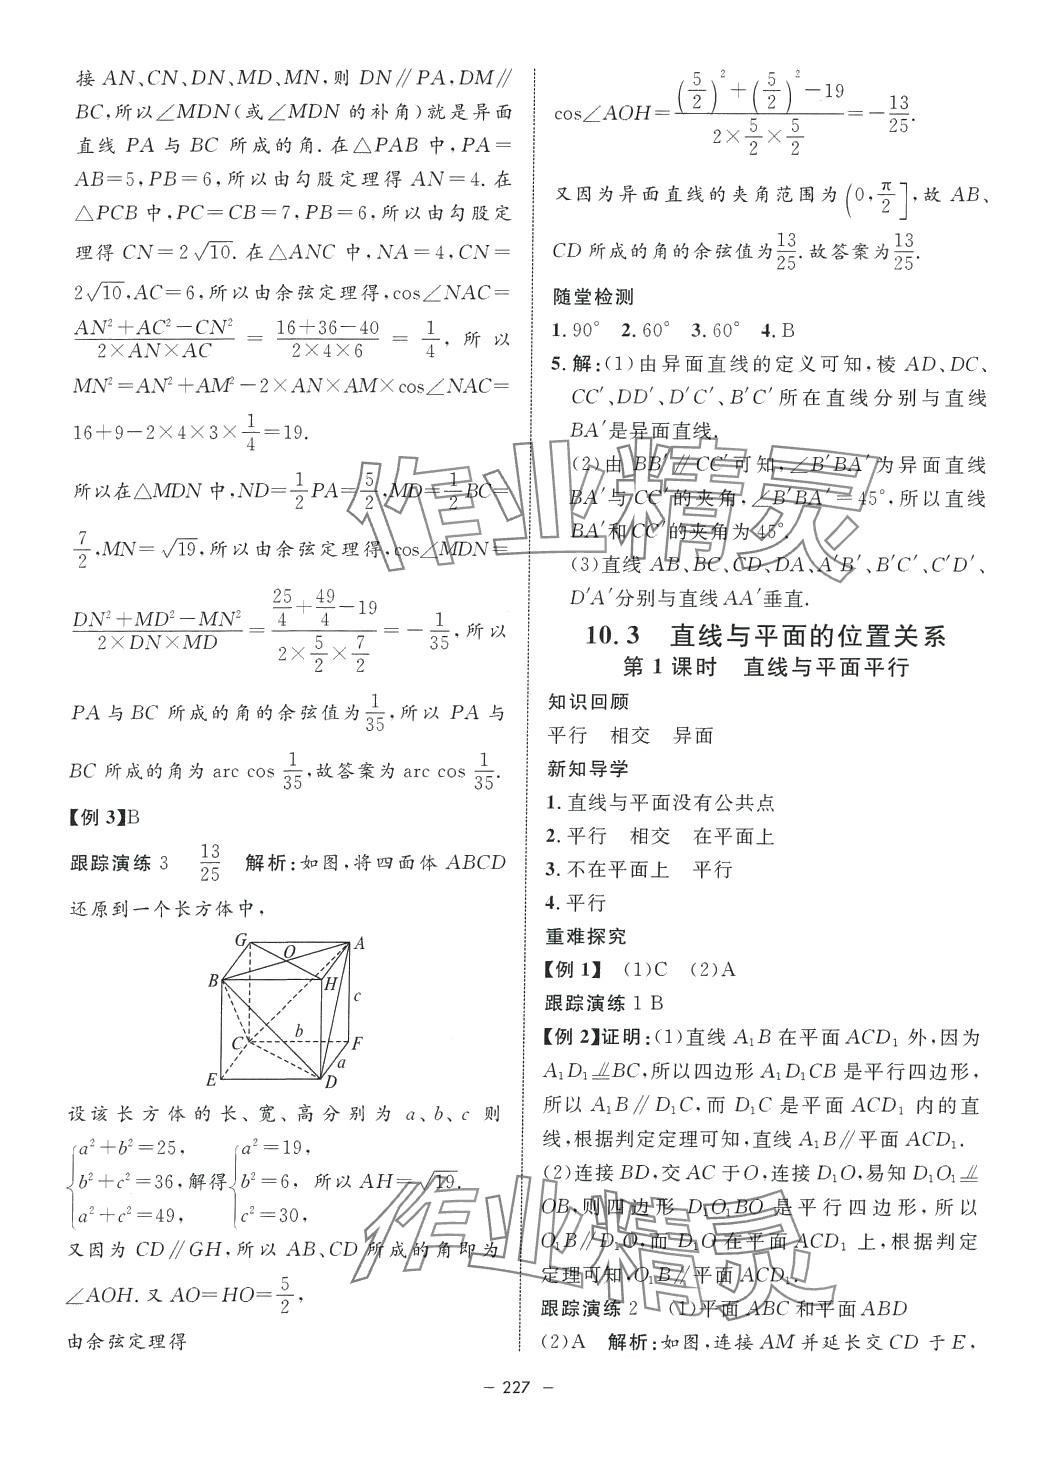 接 AN、CN、DN、MD、MN,则 DN∥PA,DM∥
BC,所以∠MDN(或∠MDN 的补角)就是异面
直线 PA 与 BC 所成的角.在△PAB 中,PA=
AB=5,PB=6,所以由勾股定理得 AN=4.在
△PCB 中,PC=CB=7,PB=6,所以由勾股定
理得 CN=2√10.在△ANC 中,NA=4,CN=
2√10,AC=6,所以由余弦定理得,cos∠NAC=
(AN²+AC²-CN²)/(2×AN×AC)=(16+36-40)/(2×4×6)=1/4,所以
MN²=AN²+AM²-2×AN×AM×cos∠NAC=
16+9-2×4×3×1/4=19.
所以在△MDN 中,ND=1/2PA=5/2,MD=1/2BC=
7/2,MN=√19,所以由余弦定理得,cos∠MDN=
(DN²+MD²-MN²)/(2×DN×MD)=(25/4+49/4-19)/(2×5/2×7/2)=-1/35,所以
PA 与 BC 所成的角的余弦值为1/35,所以 PA 与
BC 所成的角为 arc cos 1/35,故答案为 arc cos 1/35.
【例 3】B
跟踪演练 3 13/25 解析:如图,将四面体 ABCD
还原到一个长方体中,
G A O B H c C b F a E D
设该长方体的长、宽、高分别为 a、b、c 则
{a²+b²=25, b²+c²=36, a²+c²=49, 解得{a²=19, b²=6, c²=30, 所以 AH=√19.
又因为 CD∥GH,所以 AB、CD 所成的角即为
∠AOH.又 AO=HO=5/2,
由余弦定理得
cos∠AOH=((5/2)²+(5/2)²-19)/(2×5/2×5/2)=-13/25.
又因为异面直线的夹角范围为(0,π/2],故 AB、
CD 所成的角的余弦值为13/25.故答案为13/25.
随堂检测
1.90° 2.60° 3.60° 4.B
5.解:(1)由异面直线的定义可知,棱 AD、DC、
CC′、DD′、D′C′、B′C′所在直线分别与直线
BA′是异面直线.
(2)由 BB′∥CC′可知,∠B′BA′为异面直线
BA′与 CC′的夹角,∠B′BA′=45°,所以直线
BA′和 CC′的夹角为 45°.
(3)直线 AB、BC、CD、DA、A′B′、B′C′、C′D′、
D′A′分别与直线 AA′垂直.
10.3 直线与平面的位置关系
第 1 课时 直线与平面平行
知识回顾
平行 相交 异面
新知导学
1.直线与平面没有公共点
2.平行 相交 在平面上
3.不在平面上 平行
4.平行
重难探究
【例 1】 (1)C (2)A
跟踪演练 1 B
【例 2】证明:(1)直线 A₁B 在平面 ACD₁ 外,因为
A₁D₁⫫BC,所以四边形 A₁D₁CB 是平行四边形,
所以 A₁B∥D₁C,而 D₁C 是平面 ACD₁ 内的直
线,根据判定定理可知,直线 A₁B∥平面 ACD₁.
(2)连接 BD,交 AC 于 O,连接 D₁O,易知 D₁O₁⫫
OB,则四边形 D₁O₁BO 是平行四边形,所以
O₁B∥D₁O,而 D₁O 在平面 ACD₁ 上,根据判定
定理可知,O₁B∥平面 ACD₁.
跟踪演练 2 (1)平面 ABC 和平面 ABD
(2)A 解析:如图,连接 AM 并延长交 CD 于 E,
- 227 -
作业精灵
作业精灵